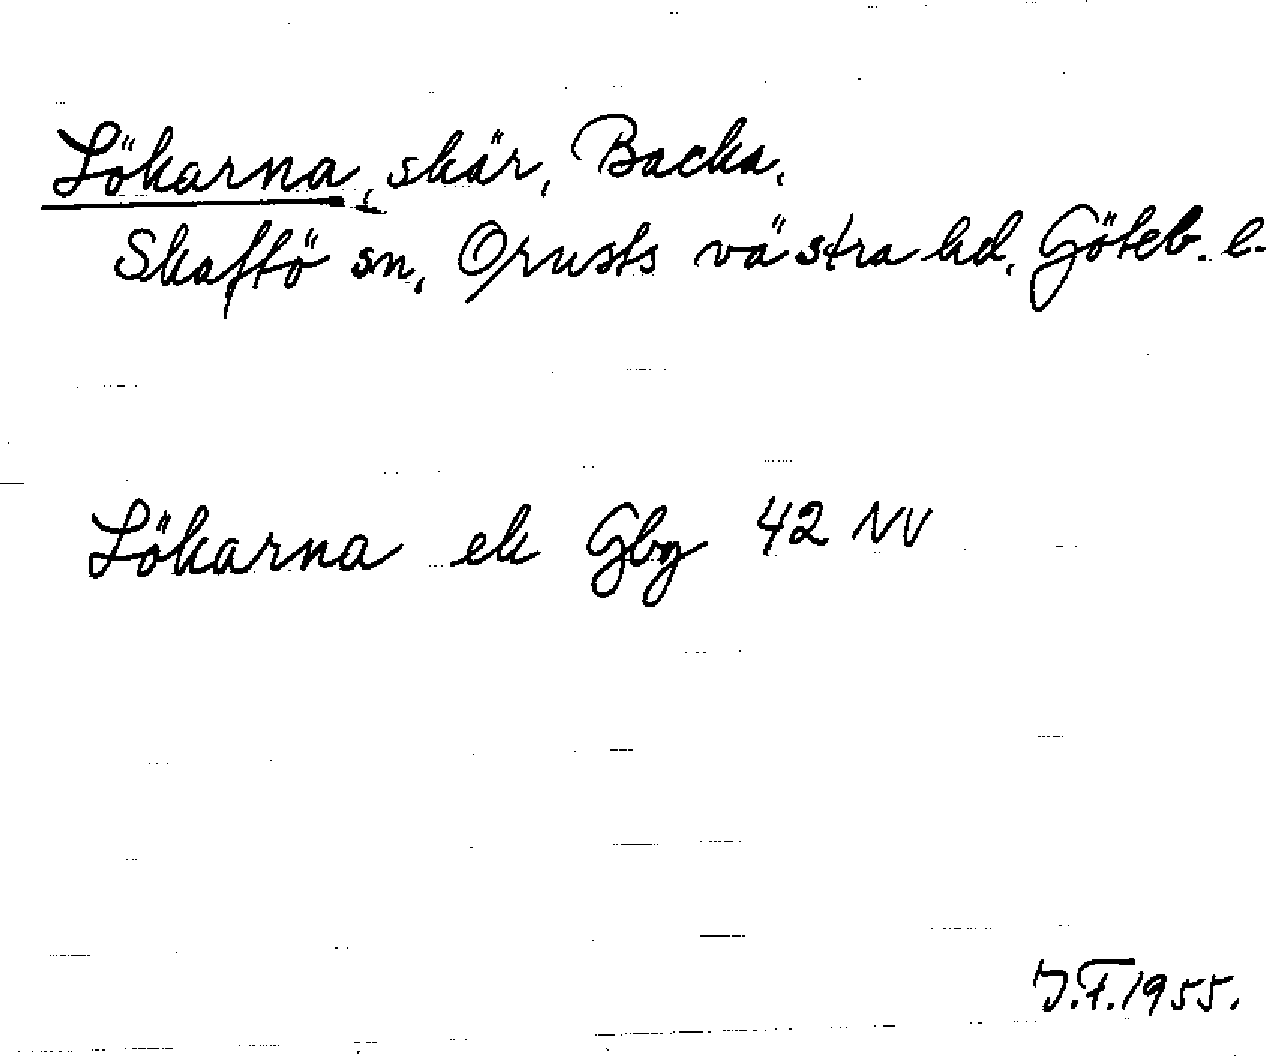 Lökarna, skär, Backa,
Skaftö sn, Orusts västra hd, Göteb. l.
Lökarna ek Gbg 42 NV
J.F. 1955.